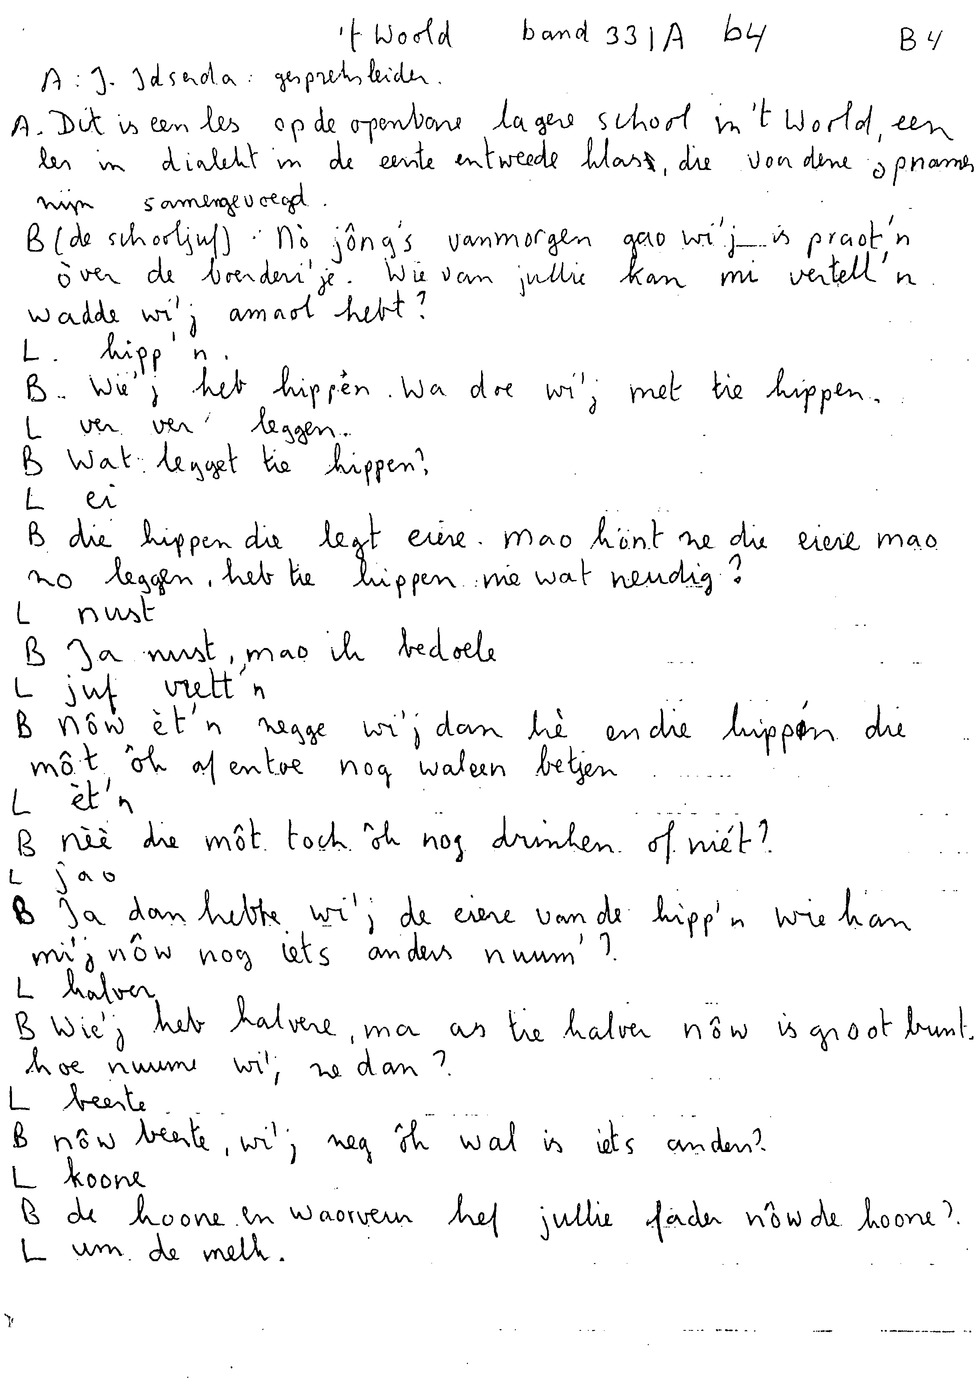 't Woold band 331A b4 B4
A: J. Idserda: gespreksleider.
A. Dit is een les op de openbare lagere school in 't Woold, een
les in dialekt in de eerste en tweede klas, die voor deze opnames
zijn samengevoegd.
B (de schooljuf). Nò jông's vanmorgen gao wi'j is praot'n
òver de boerderi'je. Wie van jullie kan mi vertell'n
wadde wi'j amaol hebt?
L. hipp'n.
B.. Wie'j heb hippen. Wa doe wi'j met tie hippen.
L ver ver leggen.
B Wat legget tie hippen?
L ei
B die hippen die legt eiere. mao könt ze die eiere mao
zo leggen, heb tie hippen nie wat neudig?
L nust
B Ja nust, mao ik bedoele
L juf vrett'n
B nôw èt'n zegge wi'j dan hè en die hippen die
môt ôk af en toe nog wal een betjen
L èt'n
B nèè die môt toch ôk nog drinken of niét?
L jao
B Ja dan hebbe wi'j de eiere van de hipp'n wie kan
mi'j nôw nog iets anders nuum'?
L kalver
B Wie'j heb kalvere, ma as tie kalver nôw is groot bunt.
hoe nuume wi'j ze dan?
L beeste
B nôw beeste, wi'j zeg ôk wal is iets anders?
L koone
B de koone en waorveur hef jullie fader nôw de koone?
L um de melk.